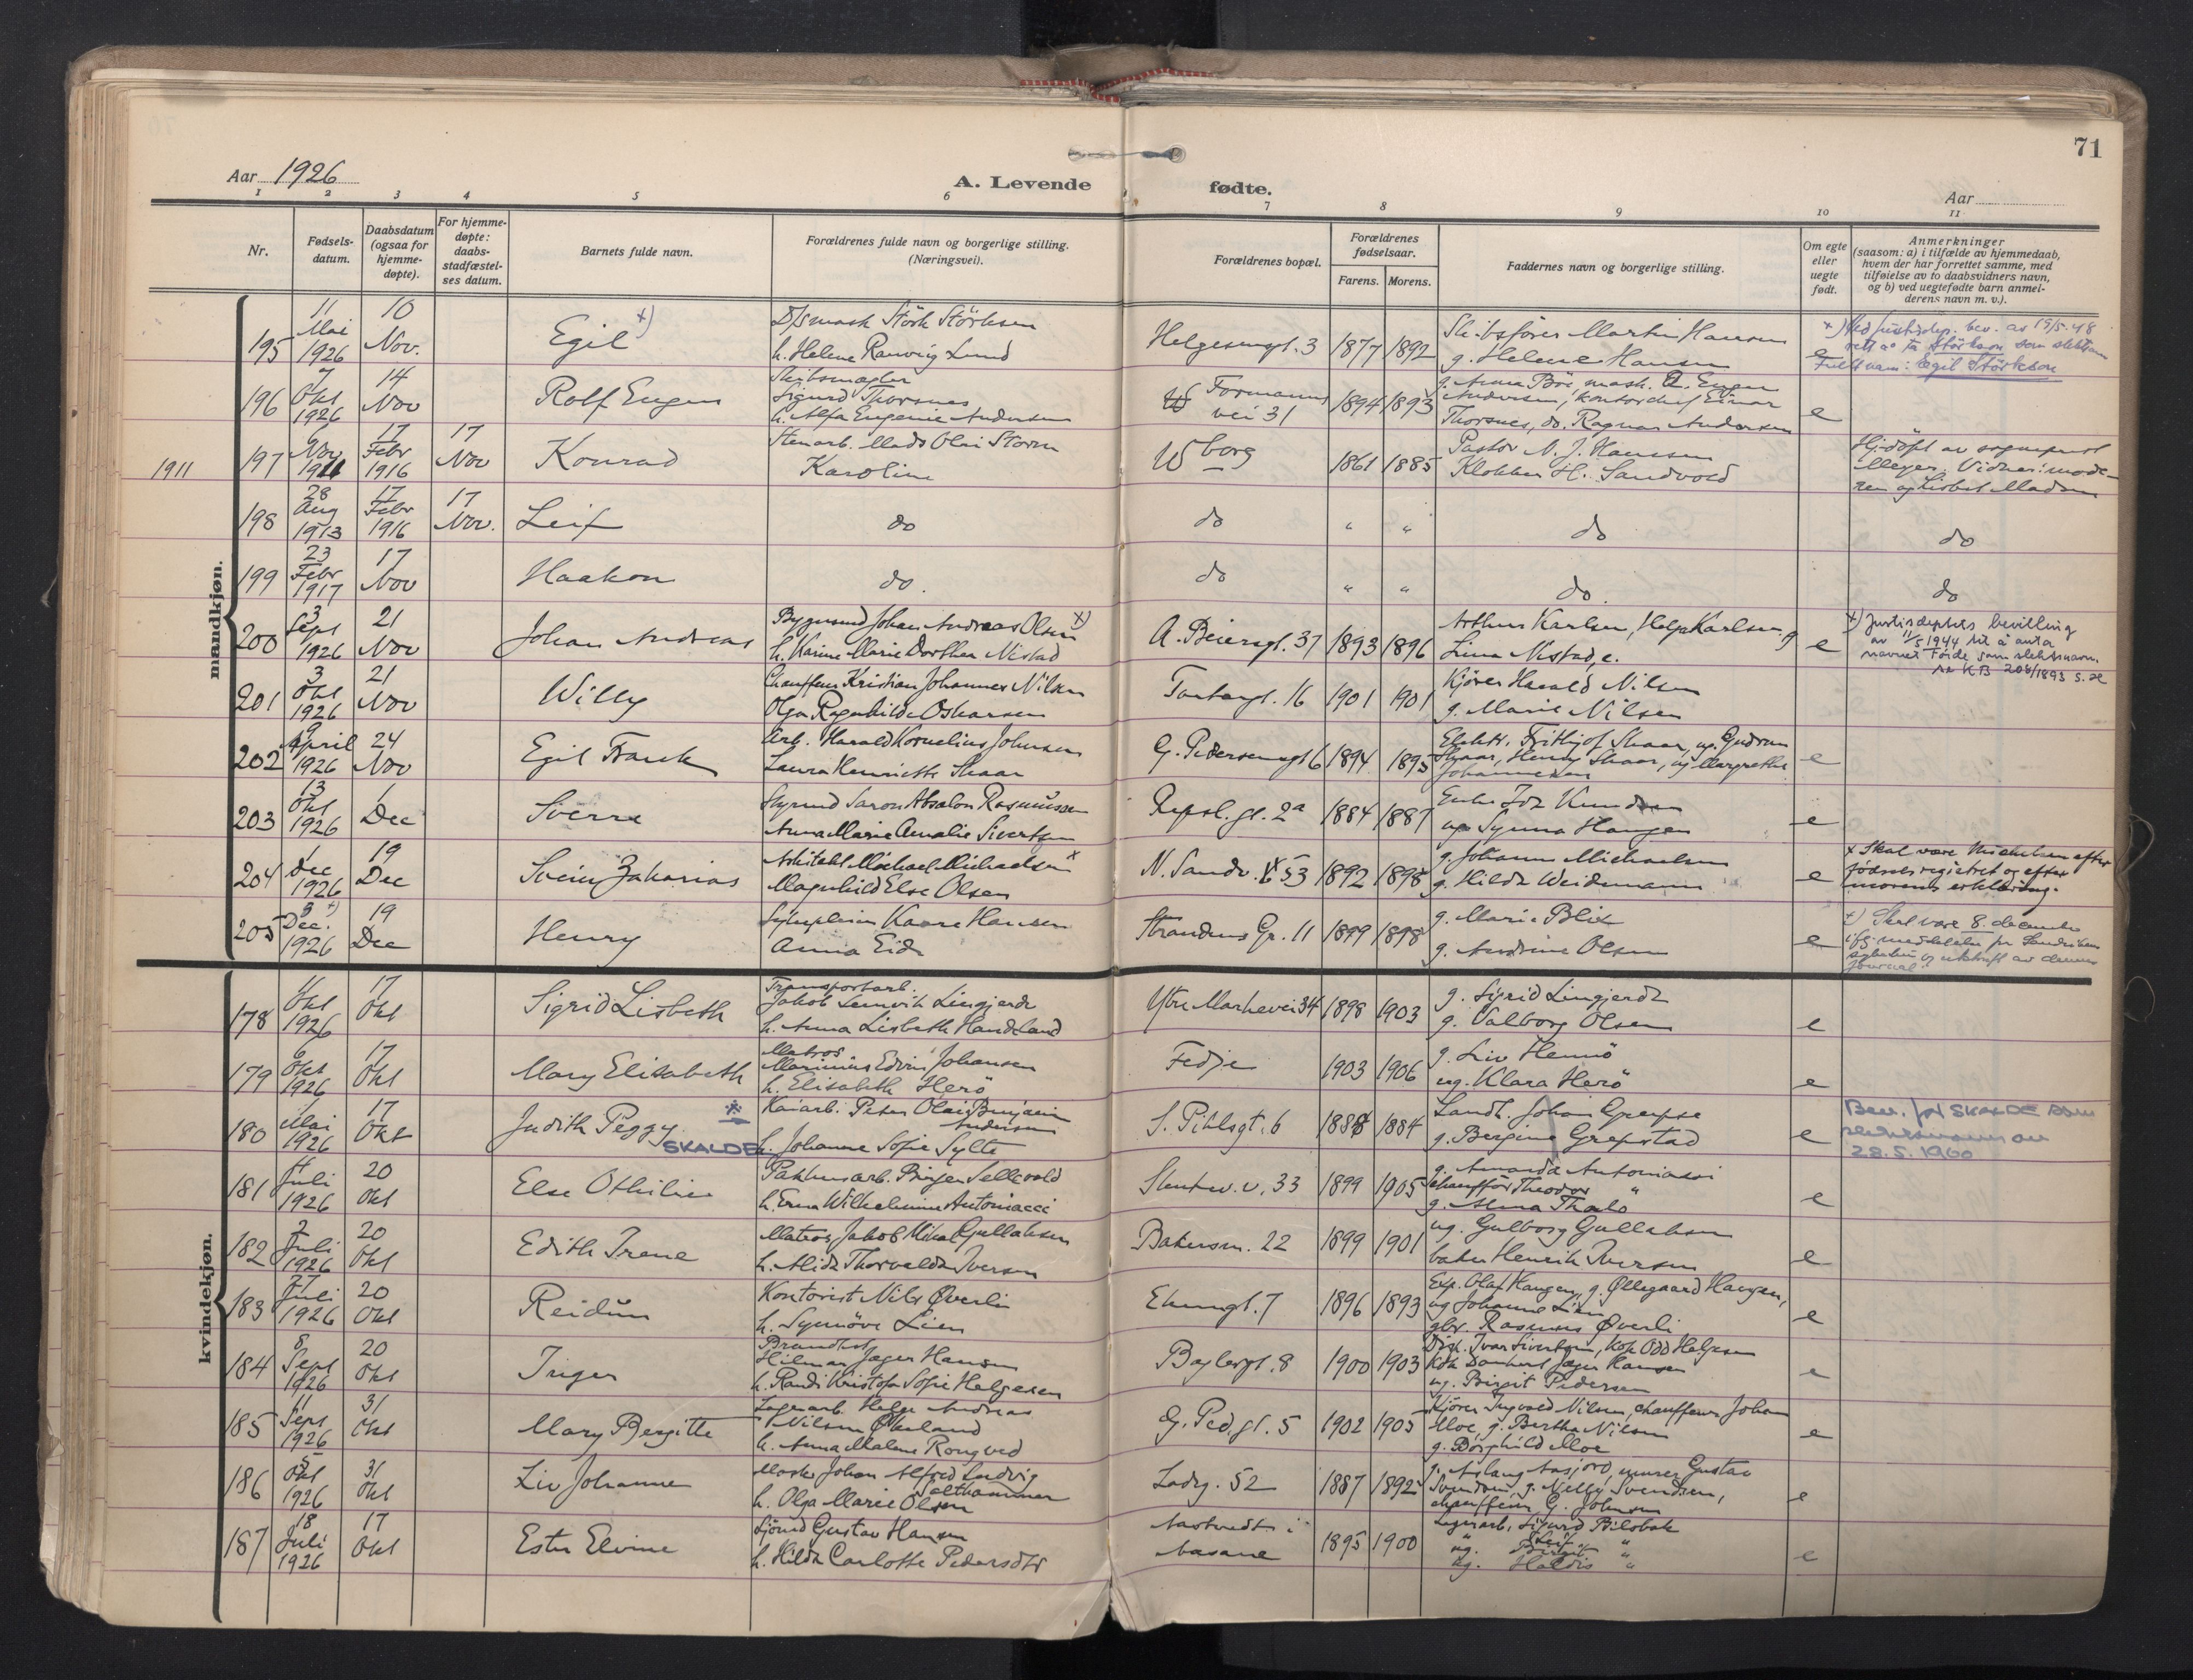 71
Aar 1926
A. Levende fødte.
Aar
1 2 3 4 5 6 7 8 9 10 11
Nr.
Fødsels-
datum.
Daabsdatum
(ogsaa for
hjemme-
døpte).
For hjemme-
døpte:
daabs-
stadfæstel-
ses datum.
Barnets fulde navn.
Forældrenes fulde navn og borgerlige stilling.
(Næringsvei).
Forældrenes bopæl.
Forældrenes
fødselsaar.
Farens. Morens.
Faddernes navn og borgerlige stilling.
Om egte
eller
uegte
født.
Anmerkninger
(saasom: a) i tilfælde av hjemmedaab,
hvem der har forrettet samme, med
tilføielse av to daabsvidners navn,
og b) ved uegtefødte barn anmel-
derens navn m. v.).
mandkjøn.
195 11 Mai 1926 10 Nov. Egil x) D/S mask Störk Störksen
h. Helene Ranvig Lund
Helgesensgt. 3 1877 1892 Skibsfører Martin Hansen
g. Helene Hansen e
x) Ved justisdep. bev. av 15/5-48
rett å ta Störkson som slektsnavn
Fullt navn: Egil Störkson
196 7 Okt 1926 14 Nov Rolf Eugen Skibsmægler
Sigurd Thorsnes
h. Alfa Eugenie Andersen
Formanns
vei 31 1894 1893 g. Anna Böe, mask. Eugen
Andersen, kontorchef Einar
Thorsnes, do. Ragnar Andersen e
1911
197 Nov 17 Febr 1916 17 Nov Konrad Stenarb. Mads Olai Storm
Karoline
borg 1861 1885 Pastor N. J. Hanssen
Klokker H. Sandvold
Hj. döpt av sogneprest
Meyer. Vidner: mode-
ren og Lisbet Madsen
198 28 Aug 1913 17 Febr 1916 17 Nov. Leif do do " " do do
199 23 Febr 1917 17 Nov Haakon do. do " " do. do
200 3 Sept 1926 21 Nov Johan Andreas Bygmund Johan Andreas Olsen x)
h. Karine Marie Dorthea Nistad
A. Beiersgt. 37 1893 1896 Arthur Karlsen, Helga Karlsen g
Lina Nistad, e. e
x) Justisdeptets bevilling
av 11/5 1944 til å anta
navnet Förde som slektsnavn.
se KB 208/1893 s. 2
201 3 Okt 1926 21 Nov Willy Chauffeur Kristian Johannes Nilsen
Olga Ragnhilda Oskarsen
Tartargt. 16 1901 1901 Kjörer Harald Nilsen
g. Marie Nilsen
202 9 April 1926 24 Nov Egil Frank Arb. Harald Kornelius Johnsen
Laura Henriette Skaar
G. Pedersensgt 6 1894 1895 Elektr. Frithjof Skaar, ug. Gudrun
Skaar, Henry Skaar, ug Margrethe
Johannessen e
203 13 Okt 1926 1 Dec Sverre Styrmd Saron Absalon Rasmussen
Anna Marie Amalie Sivertsen
Repsl. gt. 2a 1884 1887 Enke Ida Knudsen
ug Synna Haugen e
204 1 Dec 1926 19 Dec Svein Zakarias Arkitekt Michael Michaelsen x
Magnhild Else Olsen
N. Sandv. v. 53 1892 1898 g. Johanne Michaelsen
g. Hilda Weidemann e
x Skal være Mickelsen efter
fødselsregistret og efter
morens erklæring.
205 9 Dec. x) 1926 19 Dec Henry Kaare Hansen
Anna Eide
Strandens Gr. 11 1899 1898 g. Marie Blix
g. Andrine Olsen e
x) Skal være 8. december
ifg. meddelelse fra Sandviken
sykehus og utskrift av dennes
journal.
kvindekjøn.
178 11 Okt 1926 17 Okt Sigrid Lisbeth Transportarb.
Jakob Lemvik Lingjerde
h. Anna Lisbeth Handeland
Ytre Markevei 34 1898 1903 g. Sigrid Lingjerde
g. Valborg Olsen e
179 6 Okt 1926 17 Okt Mary Elisabeth Matros
Marinius Edvin Johansen
h. Elisabeth Herö
Fedje 1903 1906 g. Liv Hennö
ug. Klara Herö e
180 1 Mai 1926 17 Okt Judith Peggy SKALDE Kaiarb. Peter Olai Benjamin
Andersen
h. Johanne Sofie Sylte
S. Pihlsgt. 6 1884 Landh. Johan Grepse
g. Bergine Grepstad e
Bev. for SKALDE som
slektsnavn av
28.5.1960
181 4 Juli 1926 20 Okt Else Othilie Pakhusarb. Birger Sellevold
h. Erna Wilhelmine Antoniacci
Slentw. v. 33 1899 1905 g. Amanda Antoniacci
chauffør Theodor "
g. Alma Thalo e
182 2 Juli 1926 20 Okt Edith Irene Matros Jakob Mikal Gullaksen
h. Alida Thorvalda Iversen
Bakersm. 22 1899 1901 ug. Gulborg Gullaksen
baker Henrik Iversen e
183 27 Juli 1926 20 Okt Reidun Kontorist Nils Øverli
h. Synnöve Lien
Ekrengt. 7 1896 1893 Exp. Olaf Haugen, g. Øllegaard Haugen,
ug Johanne Lien
gbr. Rasmus Øverli e
184 8 Sept 1926 20 Okt Inger Brandkst.
Hilmar Jæger Hansen
h. Randi Kristofa Sofie Helgesen
Baglergt. 8 1900 1903 Disp. Ivar Sivertsen, kok Odd Helgesen
Kok Danckert Jæger Hansen
ug. Birgit Pedersen e
185 11 Sept 1926 31 Okt Mary Bergitte Lagerarb. Helge Andreas
Nilsen Økland
h. Anna Malene Rongved
G. Ped. gt. 5 1902 1905 Kjörer Ingvald Nilsen, chauffeur Johan
Moe, g. Bertha Nilsen
g. Borghild Moe e
186 5 Okt 1926 31 Okt Liv Johanne Johan Alfred Ludvig
Salthammer
h. Olga Marie Olsen
Ladeg. 52 1887 1892 g. Aslaug Aasjord, murer Gustav
Svendsen, g. Nelly Svendsen,
chauffeur G. Johnsen e
187 18 Juli 1926 17 Okt Ester Elvine Sjömd Gustav Hansen
h. Hilda Carlotte Pedersdtr
Aastvedt i
Aasane 1895 1900 Lagerarb. Sigurd Bilobak
ug. Birgit "
ug. Haldis " e